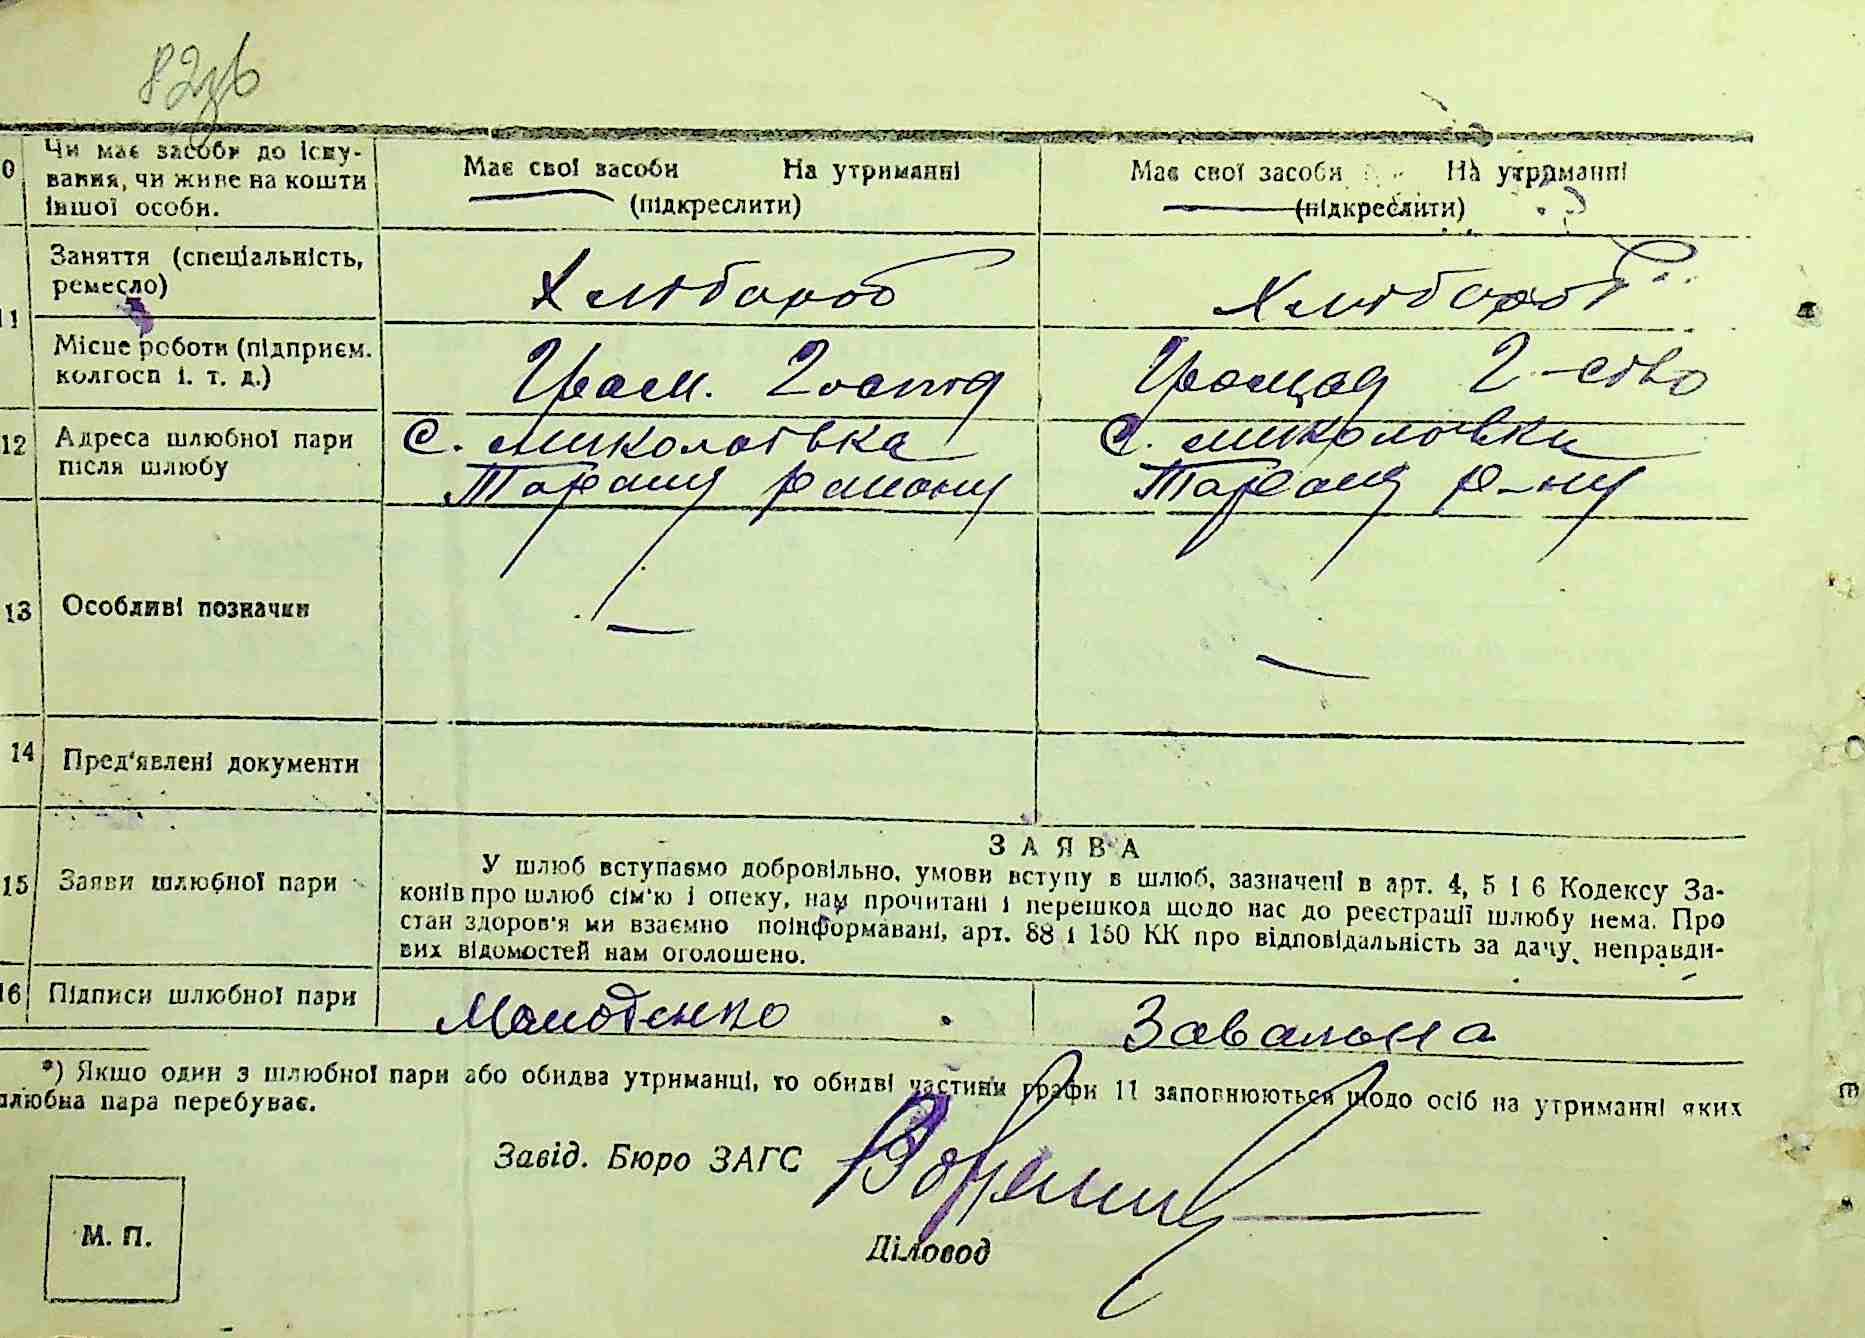 82зв
10 Чи має засоби до існу-
вання, чи живе на кошти
іншої особи.
Має свої засоби На утриманні
(підкреслити)
Має свої засоби На утриманні
(підкреслити)
11 Заняття (спеціальність,
ремесло)
Хлібороб
Хлібороб
Місце роботи (підприєм.
колгосп і. т. д.)
Гром. Господ
Громад Г-ство
12 Адреса шлюбної пари
після шлюбу
с. Миколаївка
Таращ району
с. Миколаївка
Таращ р-ну
13 Особливі позначки
—
—
14 Пред'явлені документи
15 Заяви шлюбної пари
ЗАЯВА
У шлюб вступаємо добровільно, умови вступу в шлюб, зазначені в арт. 4, 5 і 6 Кодексу За-
конів про шлюб сім'ю і опеку, нам прочитані і перешкод щодо нас до реєстрації шлюбу нема. Про
стан здоров'я ми взаємно поінформавані, арт. 88 і 150 КК про відповідальність за дачу неправди-
вих відомостей нам оголошено.
16 Підписи шлюбної пари
Завальна
*) Якщо один з шлюбної пари або обидва утриманці, то обидві частини графи 11 заповнюються щодо осіб на утриманні яких
шлюбна пара перебуває.
Завід. Бюро ЗАГС
Діловод
М. П.